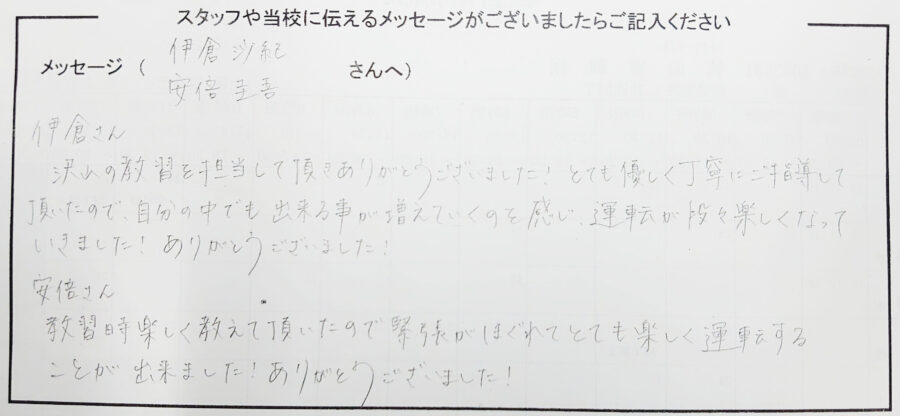 スタッフや当校に伝えるメッセージがございましたらご記入ください
伊倉沙紀
メッセージ ( さんへ)
安倍圭吾
伊倉さん
沢山の教習を担当して頂きありがとうございました!とても優しく丁寧にご指導して
頂いたので、自分の中でも出来る事が増えていくのを感じ、運転が段々楽しくなって
いきました!ありがとうございました!
安倍さん
教習時楽しく教えて頂いたので緊張がほぐれてとても楽しく運転する
ことが出来ました!ありがとうございました!